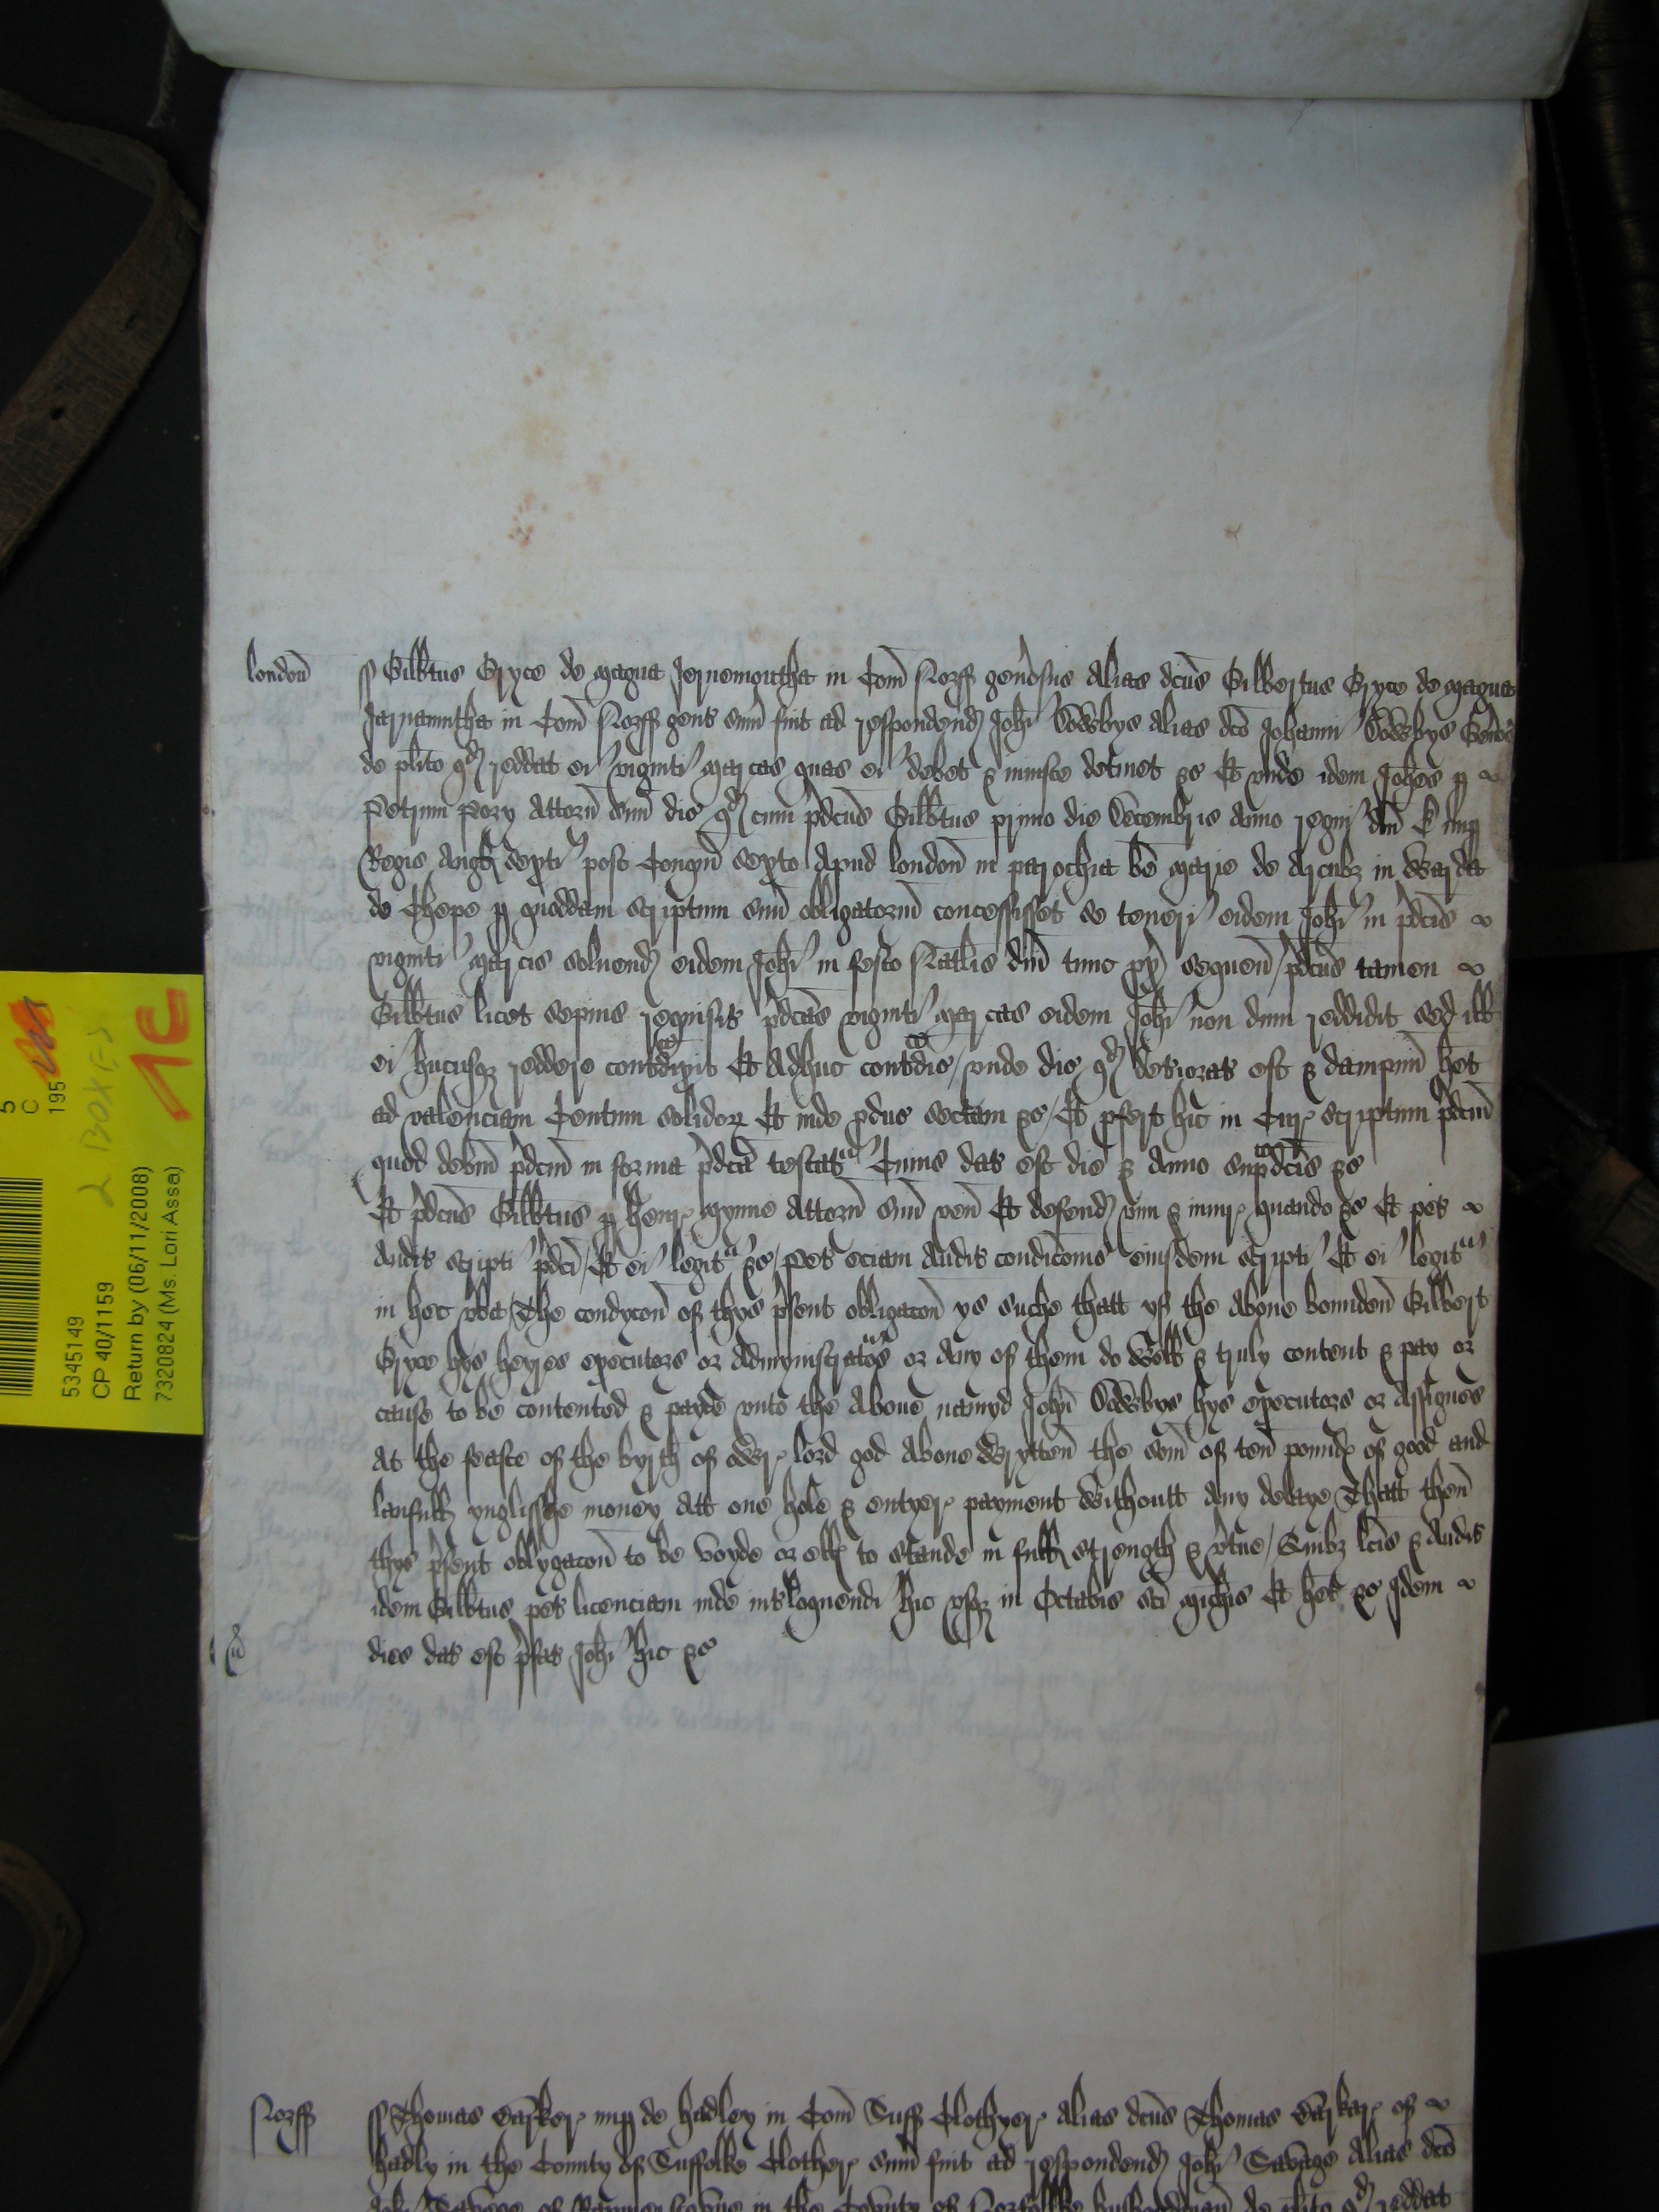 londoñ
ss Gilbtus Gryce de magna Jernemoutha in Com̄ Norff gen̄osus alias dc̄us Gilbertus Gryce de magna
Jarnamutha in Com̄ Norff gent sum̄ fuit ad respondend Joh̄i alias dc̄o Johanni
de pl̄ito qd reddat ei viginti marcas quas ei debet & iniuste detinet &c Et unde idem Joh̄es p
Petrum attorn̄ suu dic qd cum p̄dc̄us Gilbtus primo die Decembris anno regni dn̄i R nup
Regis Angl septi post conqm̄ sexto apud londoñ in parochia be marie de arcubz in warda
de Chepe p quoddam scriptum suu obligatoriu concessisset se teneri eidem Joh̄i in p̄dc̄is
viginti marcis soluend eidem Joh̄i in festo Natlis dn̄i tunc px sequen̄ / p̄dc̄us tamen
Gilbtus licet sepius requisit p̄dc̄as viginti marcas eidem Joh̄i non dum reddidit sed ill
ei hucusqz reddere contdixit Et adhuc contdic / unde dic qd det'iorat est & dampnu het
ad valenciam Centum solidor Et inde pduc sectam &c / Et pfert hic in Cur scriptum p̄dc̄m
quod debm̄ p̄dc̄m in forma p̄dc̄a testat' Cuius dat est die & anno sup̄dc̄is &c
Et p̄dc̄us Gilbtus p Henr Mynne attorn̄ suu ven̄ Et defend vim & iniur quando &c Et pet
audit scripti p̄dc̄i / Et ei legit' &c / pet eciam audit condic̄onis eiusdem scripti Et ei legit'
in hec vba / The condycoñ of thys p̄sent obligacoñ ys suche thatt yf the above boundeñ Gilbert
Gryce hys heyres executors or admynistratos or any of them do well & truly content & pay or
cause to be contented & payde unto the above namyd Joh̄n hys executors or assignes
at the feaste of the byrth of owr lord god above wrytteñ the som̄ of teñ pound of good and
laufull ynglisshe money att one hole & entyer payment withoutt any delaye Thatt theñ
thys p̄sent oblygacoñ to be voyde or ell to stande in full strength & v̄tue / Quibz lc̄is & audit
idem Gilbtus pet licenciam inde int'loquendi hic usqz in Octabis sc̄i Mich̄is Et het &c Idem
dies dat est p̄fat Joh̄i hic &c
Norff
ss Thomas Barker nup de hadley in Com̄ Suff Clothyer alias dc̄us Thomas Barkar of
hadly in the County of Suffolke Clother sum̄ fuit ad respondend Joh̄i Savage alias dc̄o
in the County of Norfolke husbondman de pl̄ito qd reddat
5
C
195
2 BOXES
1C
5345149
CP 40/1159
Return by (06/11/2008)
7320824 (Ms. Lori Assa)